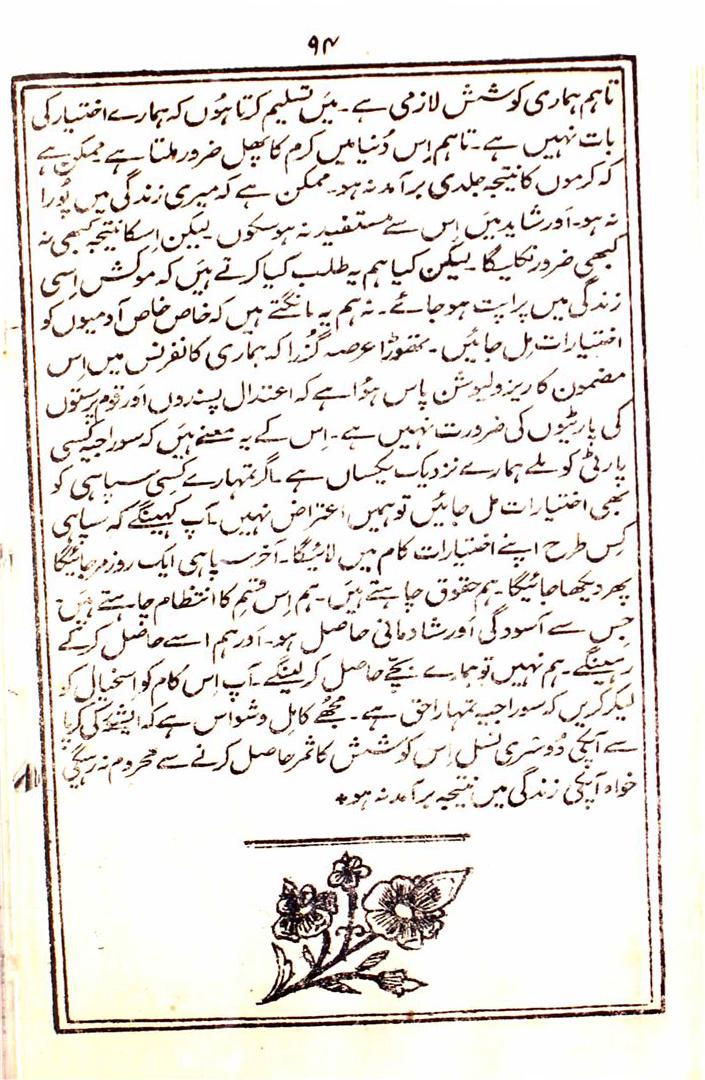 ۹۴
تاہم ہماری کوشش لازمی ہے۔ میں تسلیم کرتا ہُوں کہ ہمارے اختیار کی
بات نہیں ہے۔ تاہم اِس دُنیا میں کرم کا پھل ضرور ملتا ہے ممکن ہے
کہ کرموں کا نتیجہ جلدی برآمد نہ ہو۔ ممکن ہے کہ میری زندگی میں پُورا
نہ ہو۔ اَور شاید میں اِس سے مستفید نہ ہو سکوں۔ لیکن اِسکا نتیجہ کبھی نہ
کبھی ضرور نکلیگا۔ لیکن کیا ہم یہ طلب کیا کرتے ہیں کہ موکش اِسی
زندگی میں پراپت ہو جائے۔ نہ ہم یہ مانگتے ہیں کہ خاص خاص آدمیوں کو
اختیارات مِل جائیں۔ تھوڑا عرصہ گُزرا کہ ہماری کانفرنس میں اِس
مضمون کا ریزولیوشن پاس ہؤا ہے کہ اعتدال پسندوں اَور قوم پرستوں
کی پارٹیوں کی ضرورت نہیں ہے۔ اِس کے یہ معنے ہیں کہ سوراجیہ کسی
پارٹی کو ملے ہمارے نزدیک یکساں ہے۔ اگر تمہارے کسی سپاہی کو
بھی اختیارات مل جائیں تو ہمیں اعتراض نہیں۔ آپ کہینگے کہ سپاہی
کِس طرح اپنے اختیارات کام میں لائیگا۔ آخر سپاہی ایک روز مر جائیگا
پھر دیکھا جائیگا۔ ہم حقوق چاہتے ہیں۔ ہم اِس قِسم کا انتظام چاہتے ہیں
جِس سے آسودگی اَور شادمانی حاصل ہو۔ اَور ہم اسے حاصل کر کے
رہینگے۔ ہم نہیں تو ہمارے بچے حاصل کر لینگے۔ آپ اِس کام کو اسخیال کو
لیکر کریں کہ سوراجیہ تمہارا حق ہے۔ مجھے کامِل وشواس ہے کہ ایشور کی کرپا
سے آپکی دُوسری نسل اِس کوشش کا ثمر حاصل کرنے سے محروم نہ رہیگی
خواہ آپکی زندگی میں نتیجہ برآمد نہ ہو٭